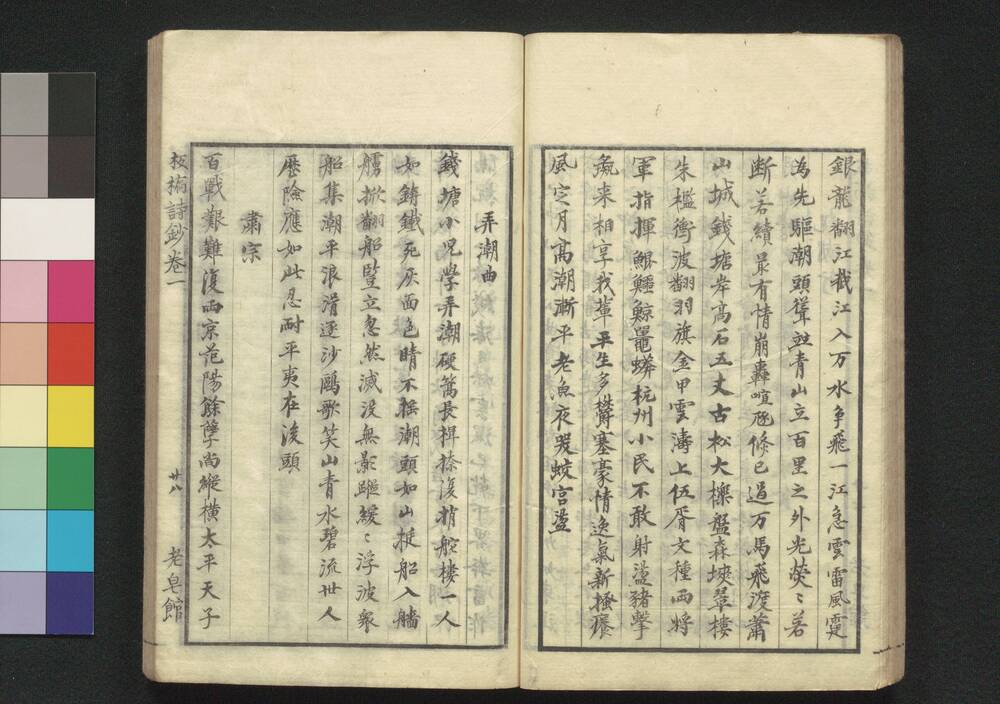 銀龍翻江截江入万水争飛一江急雲雷風霆
為先驅潮頭聳並青山立百里之外光熒〻若
断若續最有情崩轟喧豗倏已過万馬飛渡蕭
山城錢塘岸高石五丈古松大櫟盤森塽翠樓
朱檻衝波翻羽旗金甲雲濤上伍胥文種両将
軍指揮鯤鱷鯨鼍蟒杭州小民不敢射盪豬擊
彘来相享我輩平生多欝塞豪情逸氣新搔癢
風定月高潮漸平老魚夜哭蛟宮盪
弄潮曲
錢塘小児學弄潮硬篙長楫捺復捎舵樓一人
如鋳鐡死灰面色睛不揺潮頭如山挺船入檣
艣掀翻船豎立忽然滅没無影蹤緩〻浮波衆
船集潮平浪滑逐沙鷗歌笑山青水碧流世人
歴險應如此忍耐平夷在後頭
肅宗
百戰艱難復両京范陽餘孽尚縱横太平天子
板橋詩鈔巻一
廿八
老皂館